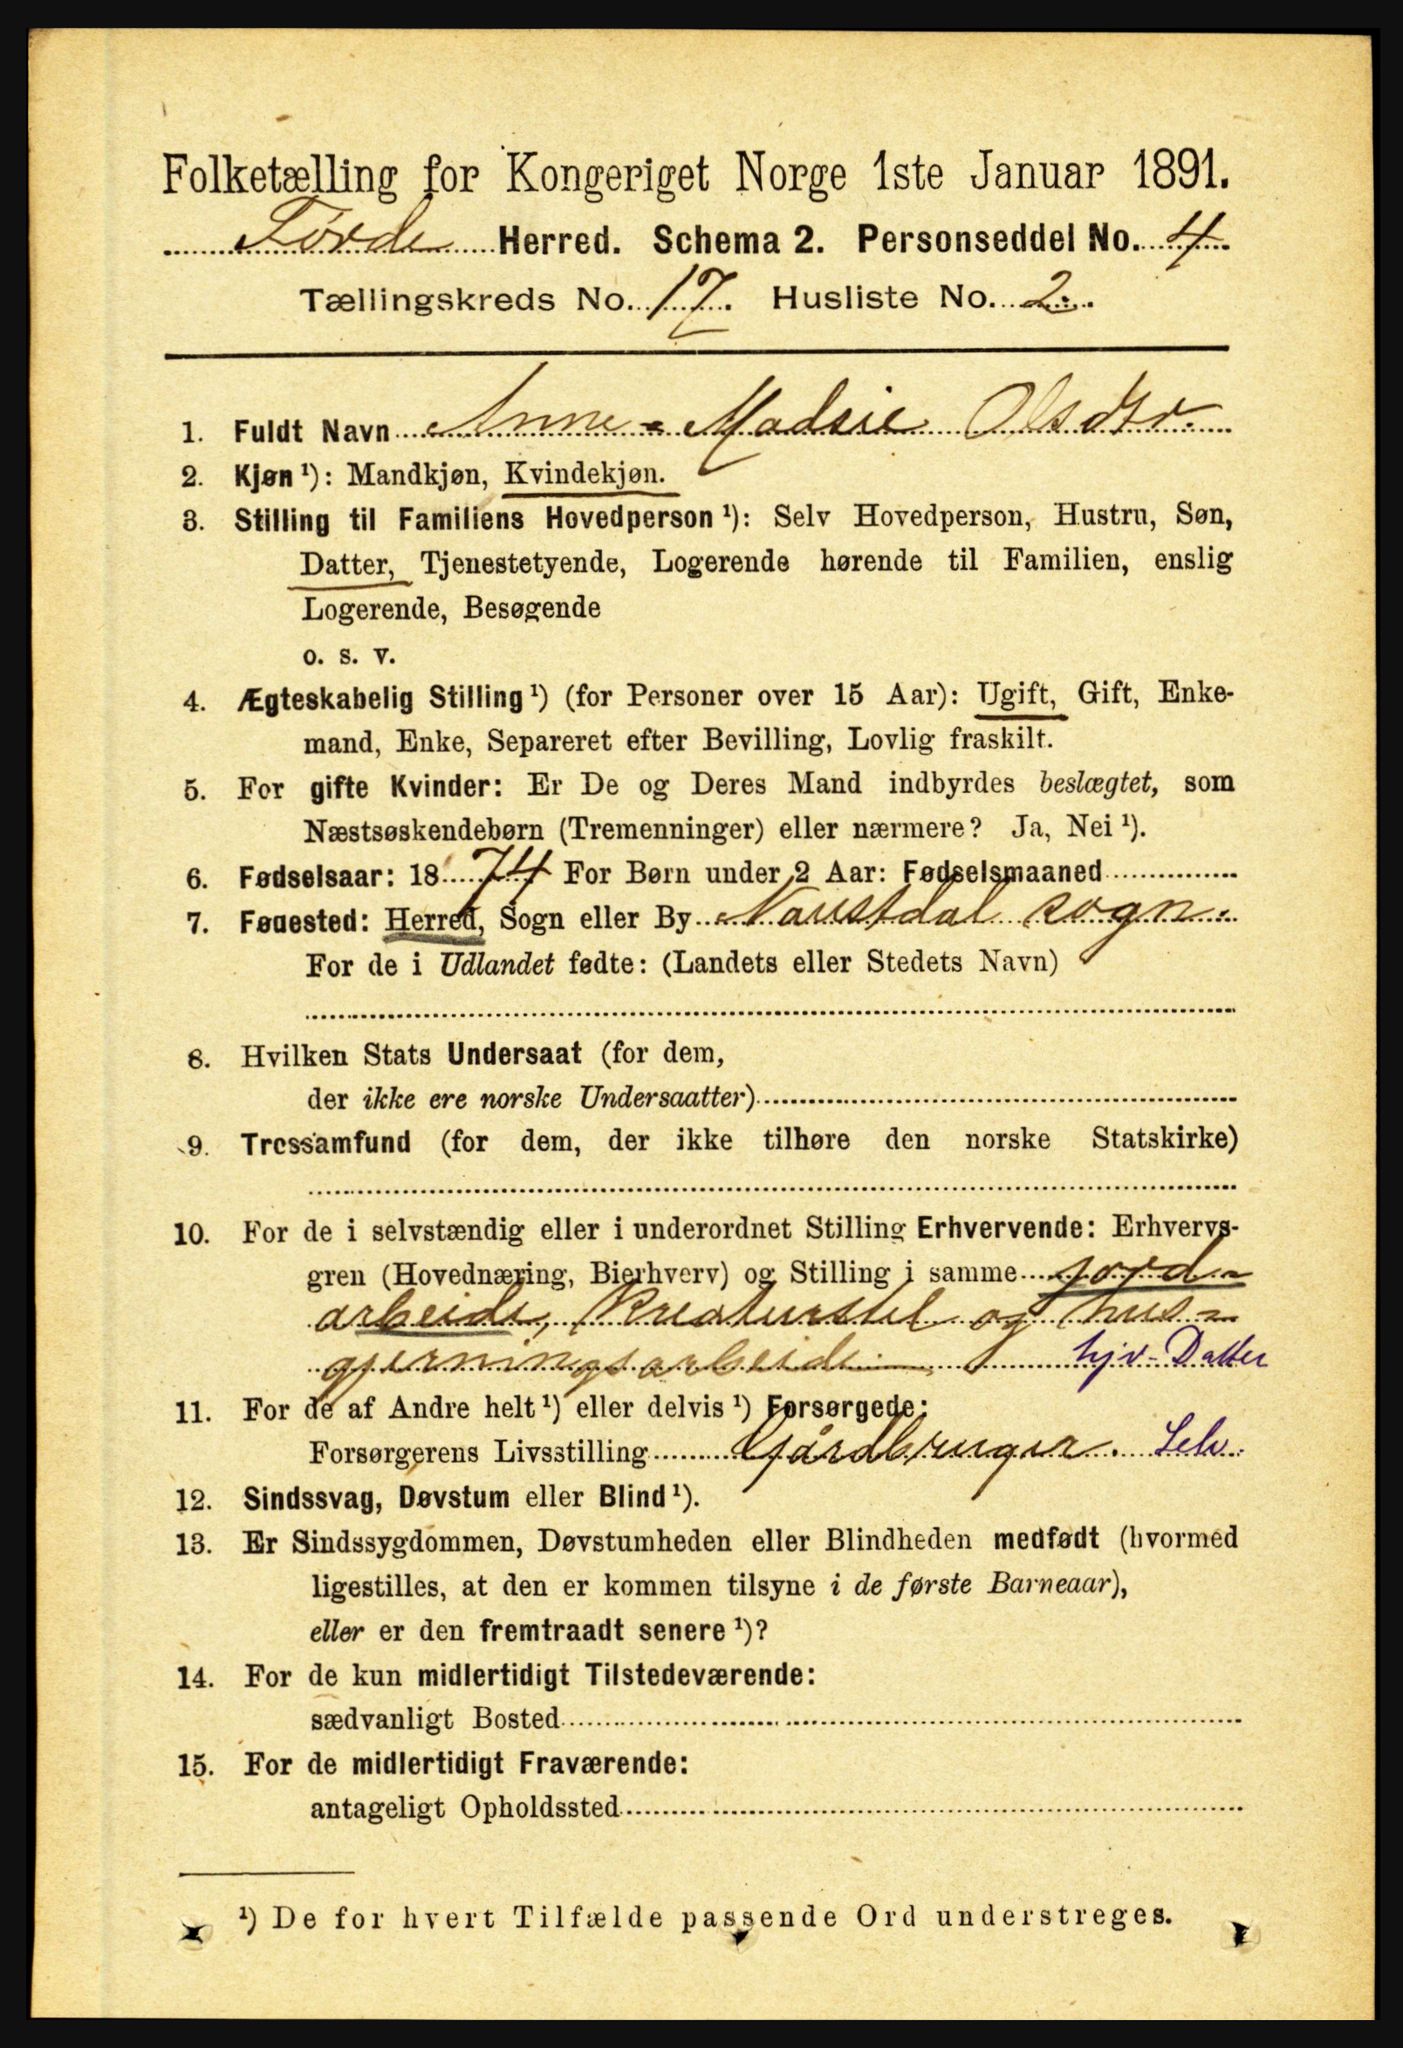 Folketælling for Kongeriget Norge 1ste Januar 1891.
Førde Herred. Schema 2. Personseddel No. 4
Tællingskreds No. 17. Husliste No. 2.
1. Fuldt Navn Anne Madsie Olsdtr.
2. Kjøn ¹): Mandkjøn, Kvindekjøn.
3. Stilling til Familiens Hovedperson ¹): Selv Hovedperson, Hustru, Søn,
Datter, Tjenestetyende, Logerende hørende til Familien, enslig
Logerende, Besøgende
o. s. v.
4. Ægteskabelig Stilling ¹) (for Personer over 15 Aar): Ugift, Gift, Enke-
mand, Enke, Separeret efter Bevilling, Lovlig fraskilt.
5. For gifte Kvinder: Er De og Deres Mand indbyrdes beslægtet, som
Næstsøskendebørn (Tremenninger) eller nærmere? Ja, Nei ¹).
6. Fødselsaar: 1874 For Børn under 2 Aar: Fødselsmaaned
7. Fødested: Herred, Sogn eller By Naustdal sogn.
For de i Udlandet fødte: (Landets eller Stedets Navn)
8. Hvilken Stats Undersaat (for dem,
der ikke ere norske Undersaatter)
9. Trossamfund (for dem, der ikke tilhøre den norske Statskirke)
10. For de i selvstændig eller i underordnet Stilling Erhvervende: Erhvervs-
gren (Hovednæring, Bierhverv) og Stilling i samme jord-
arbeide, Kreaturstel og hus-
gjerningsarbeide hjv. Datter
11. For de af Andre helt ¹) eller delvis ¹) Forsørgede:
Forsørgerens Livsstilling Gårdbruger. Selv.
12. Sindssvag, Døvstum eller Blind ¹).
13. Er Sindssygdommen, Døvstumheden eller Blindheden medfødt (hvormed
ligestilles, at den er kommen tilsyne i de første Barneaar),
eller er den fremtraadt senere ¹)?
14. For de kun midlertidigt Tilstedeværende:
sædvanligt Bosted
15. For de midlertidigt Fraværende:
antageligt Opholdssted
¹) De for hvert Tilfælde passende Ord understreges.